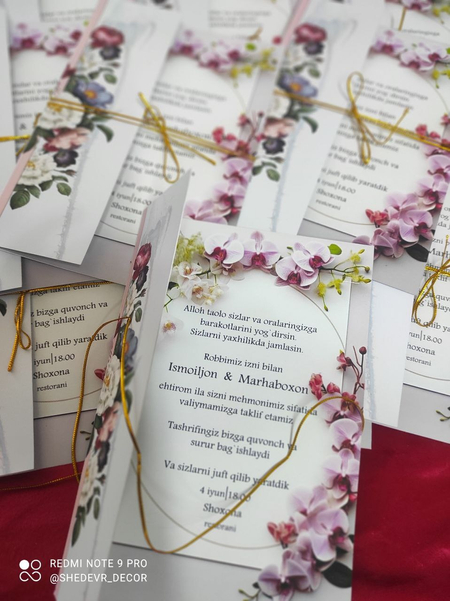 Alloh taolo sizlar va oralaringizga
barakotlarini yog`dirsin.
Sizlarni yaxshilikda jamlasin.
Robbimiz izni bilan
Ismoiljon & Marhaboxon
ehtirom ila sizni mehmonimiz sifatida
valiymamizga taklif etamiz
Tashrifingiz bizga quvonch va
surur bag`ishlaydi
Va sizlarni juft qilib yaratdik
4 iyun|18:00
Shoxona
restorani
bizga quvonch va
bag`ishlaydi
juft qilib yaratdik
iyun|18.00
Shoxona
restorani
REDMI NOTE 9 PRO
@SHEDEVR_DECOR